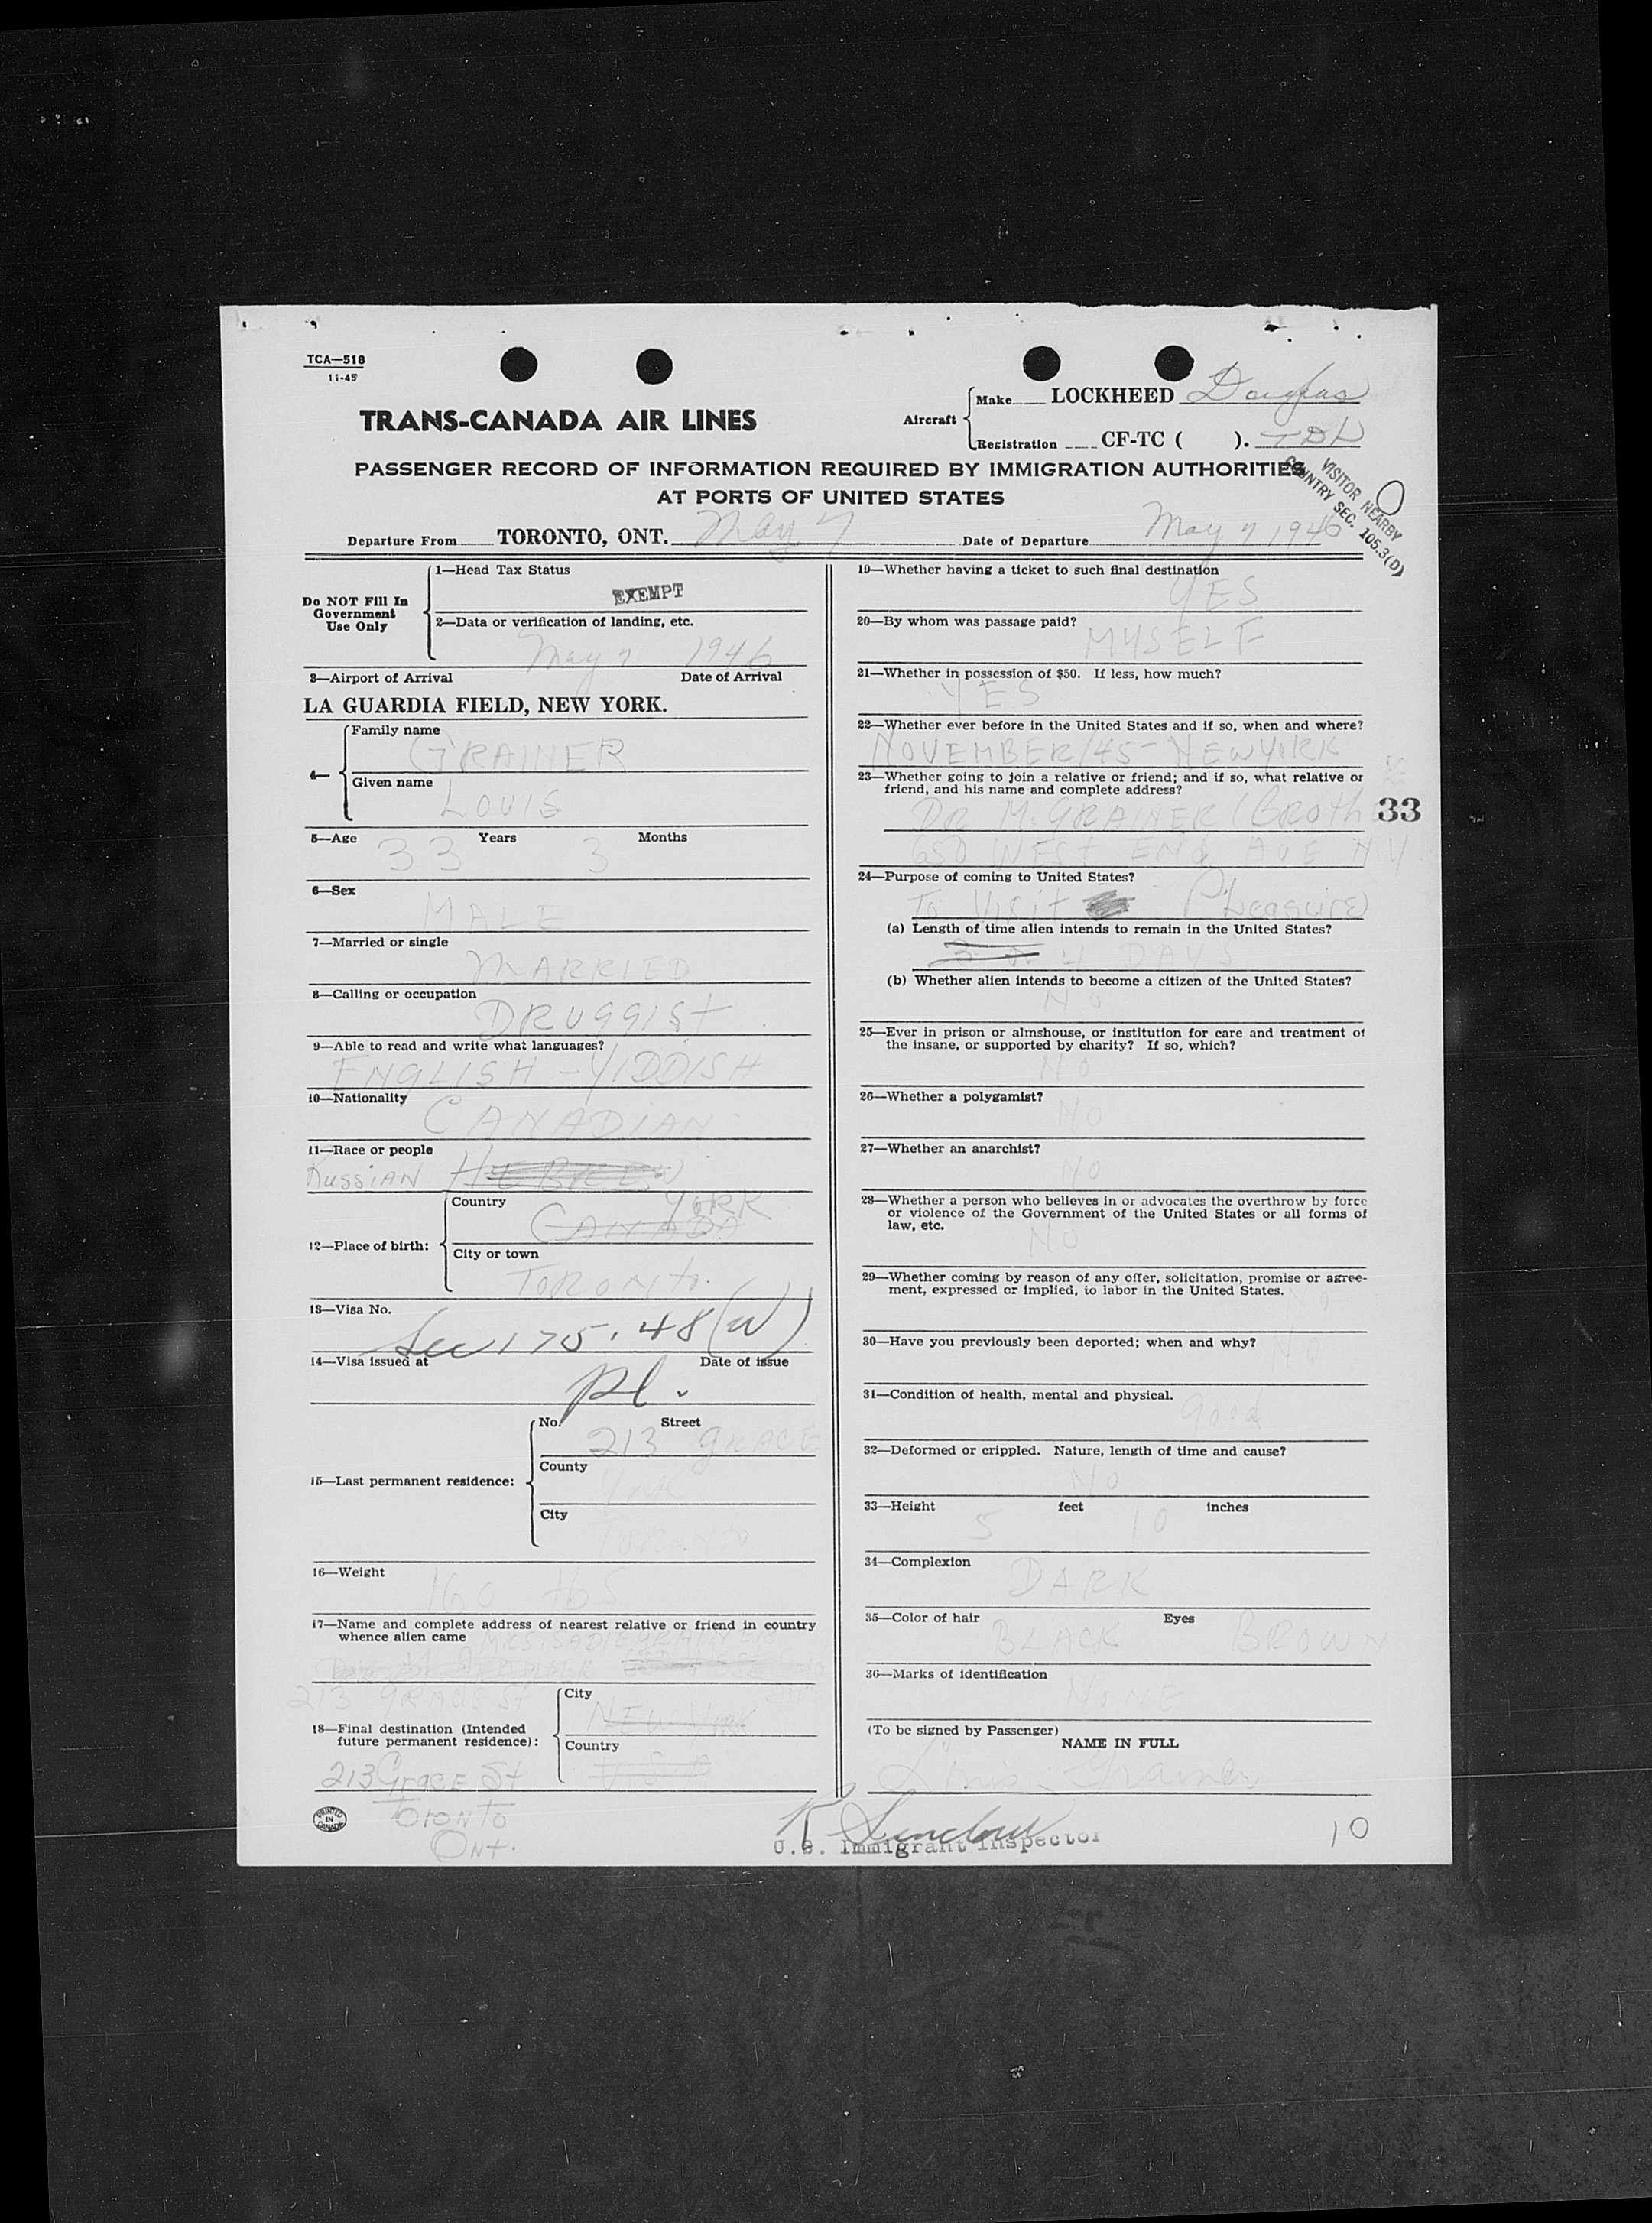 TCA—518
11-45
TRANS-CANADA AIR LINES
Aircraft
Make LOCKHEED Douglas
Registration CF-TC ( ). TDL
PASSENGER RECORD OF INFORMATION REQUIRED BY IMMIGRATION AUTHORITIES
AT PORTS OF UNITED STATES
VISITOR NEARBY
COUNTRY SEC. 105.3(D)
Departure From TORONTO, ONT. May 7 Date of Departure May 7 1946
Do NOT Fill In
Government
Use Only
1—Head Tax Status
EXEMPT
2—Data or verification of landing, etc.
May 7 1946
3—Airport of Arrival Date of Arrival
LA GUARDIA FIELD, NEW YORK.
4—
Family name
GRAINER
Given name
LOUIS
5—Age 33 Years 3 Months
6—Sex
MALE
7—Married or single
MARRIED
8—Calling or occupation
DRUGGIST
9—Able to read and write what languages?
ENGLISH - YIDDISH
10—Nationality
CANADIAN
11—Race or people
RUSSIAN HEBREW
12—Place of birth:
Country YORK
CANADA
City or town
TORONTO.
13—Visa No.
Sec 175.48 (W)
14—Visa issued at Date of issue
Pl.
15—Last permanent residence:
No. Street
213 GRACE
County
York
City
TORONTO
16—Weight
160 lbs
17—Name and complete address of nearest relative or friend in country
whence alien came
MRS. SADIE GRAINER
213 GRACE ST
18—Final destination (Intended
future permanent residence):
City
NEW YORK
Country
USA
213 GRACE St
TORONTO
ONT.
PRINTED
IN
CANADA
19—Whether having a ticket to such final destination
YES
20—By whom was passage paid?
MYSELF
21—Whether in possession of $50. If less, how much?
YES
22—Whether ever before in the United States and if so, when and where?
NOVEMBER/45 - NEW YORK
23—Whether going to join a relative or friend; and if so, what relative or
friend, and his name and complete address?
DR M. GRAINER (BROTH
33
650 WEST END AVE N.Y
24—Purpose of coming to United States?
To VISIT (PLeasure)
(a) Length of time alien intends to remain in the United States?
4 DAYS
(b) Whether alien intends to become a citizen of the United States?
No
25—Ever in prison or almshouse, or institution for care and treatment of
the insane, or supported by charity? If so, which?
No
26—Whether a polygamist?
NO
27—Whether an anarchist?
NO
28—Whether a person who believes in or advocates the overthrow by force
or violence of the Government of the United States or all forms of
law, etc.
NO
29—Whether coming by reason of any offer, solicitation, promise or agree-
ment, expressed or implied, to labor in the United States.
No
30—Have you previously been deported; when and why?
No
31—Condition of health, mental and physical.
Good
32—Deformed or crippled. Nature, length of time and cause?
No
33—Height 5 feet 10 inches
34—Complexion
DARK
35—Color of hair Eyes
BLACK BROWN
36—Marks of identification
NONE
(To be signed by Passenger)
NAME IN FULL
Louis Grainer
U.S. Immigrant Inspector
10